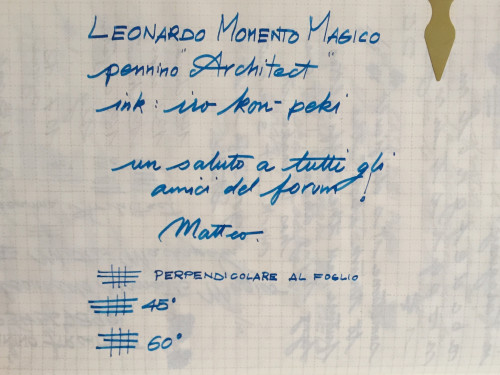 LEONARDO MOMENTO MAGICO
pennino "Architect"
ink: iro kon-peki
un saluto a tutti gli
amici del forum!
Matteo.
PERPENDICOLARE AL FOGLIO
45°
60°